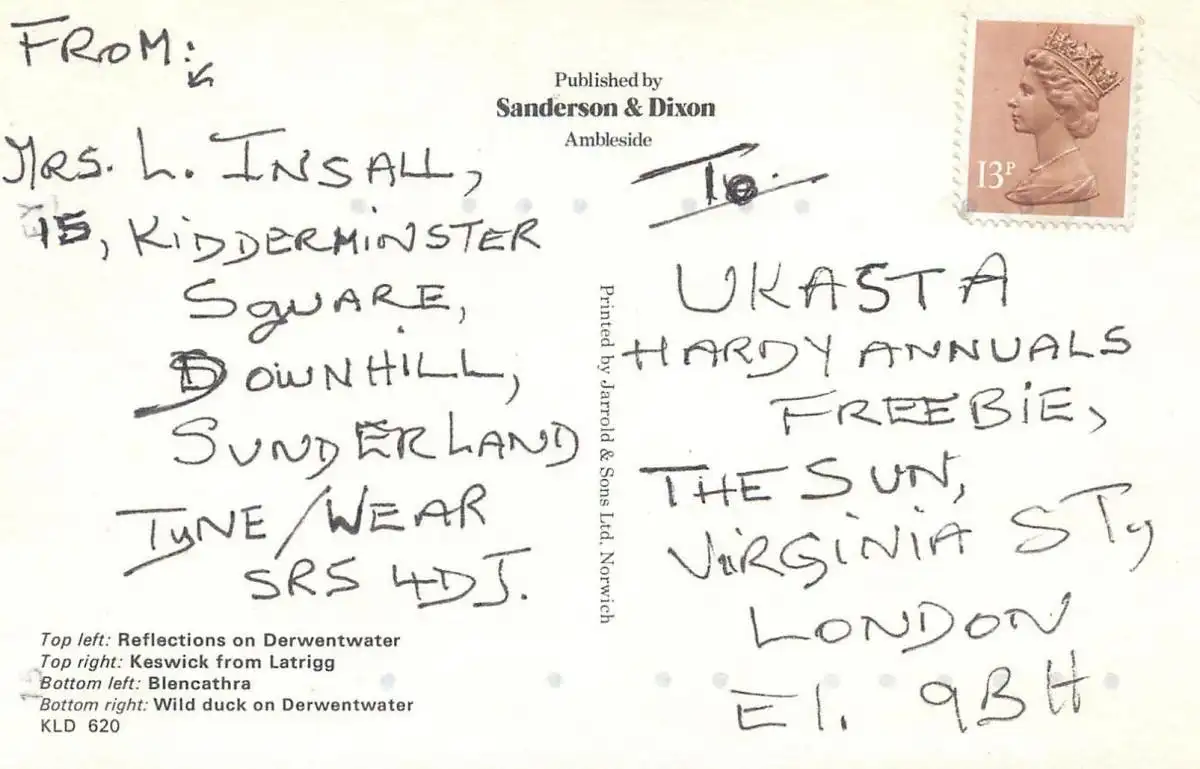 FROM:
MRS. L. INSALL,
15, KIDDERMINSTER
SQUARE,
DOWNHILL,
SUNDERLAND
TYNE/WEAR
SR5 4DJ.
Top left: Reflections on Derwentwater
Top right: Keswick from Latrigg
Bottom left: Blencathra
Bottom right: Wild duck on Derwentwater
KLD 620
Published by
Sanderson & Dixon
Ambleside
Printed by Jarrold & Sons Ltd, Norwich
13P
To.
UKASTA
HARDY ANNUALS
FREEBIE,
THE SUN,
VIRGINIA ST,
LONDON
E1. 9BH